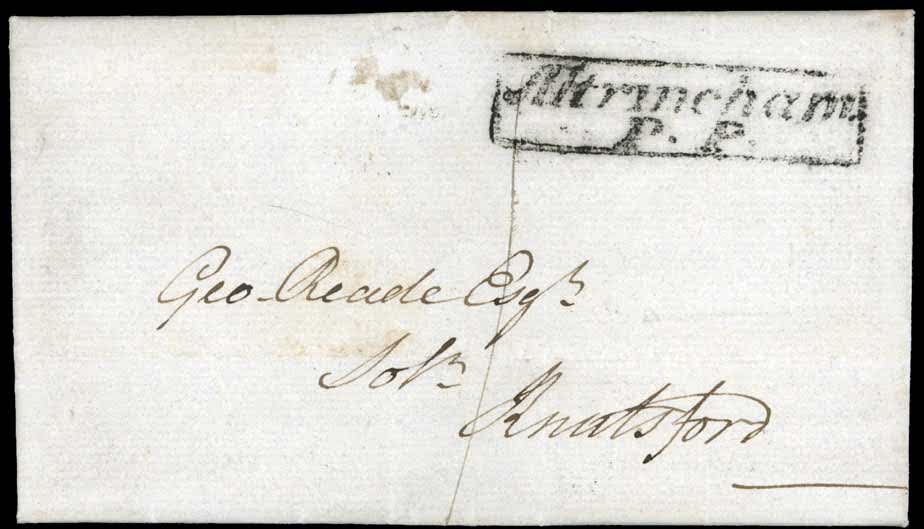 Altrincham
P. P.
Geo. Reade Esqr
Solr
Knutsford